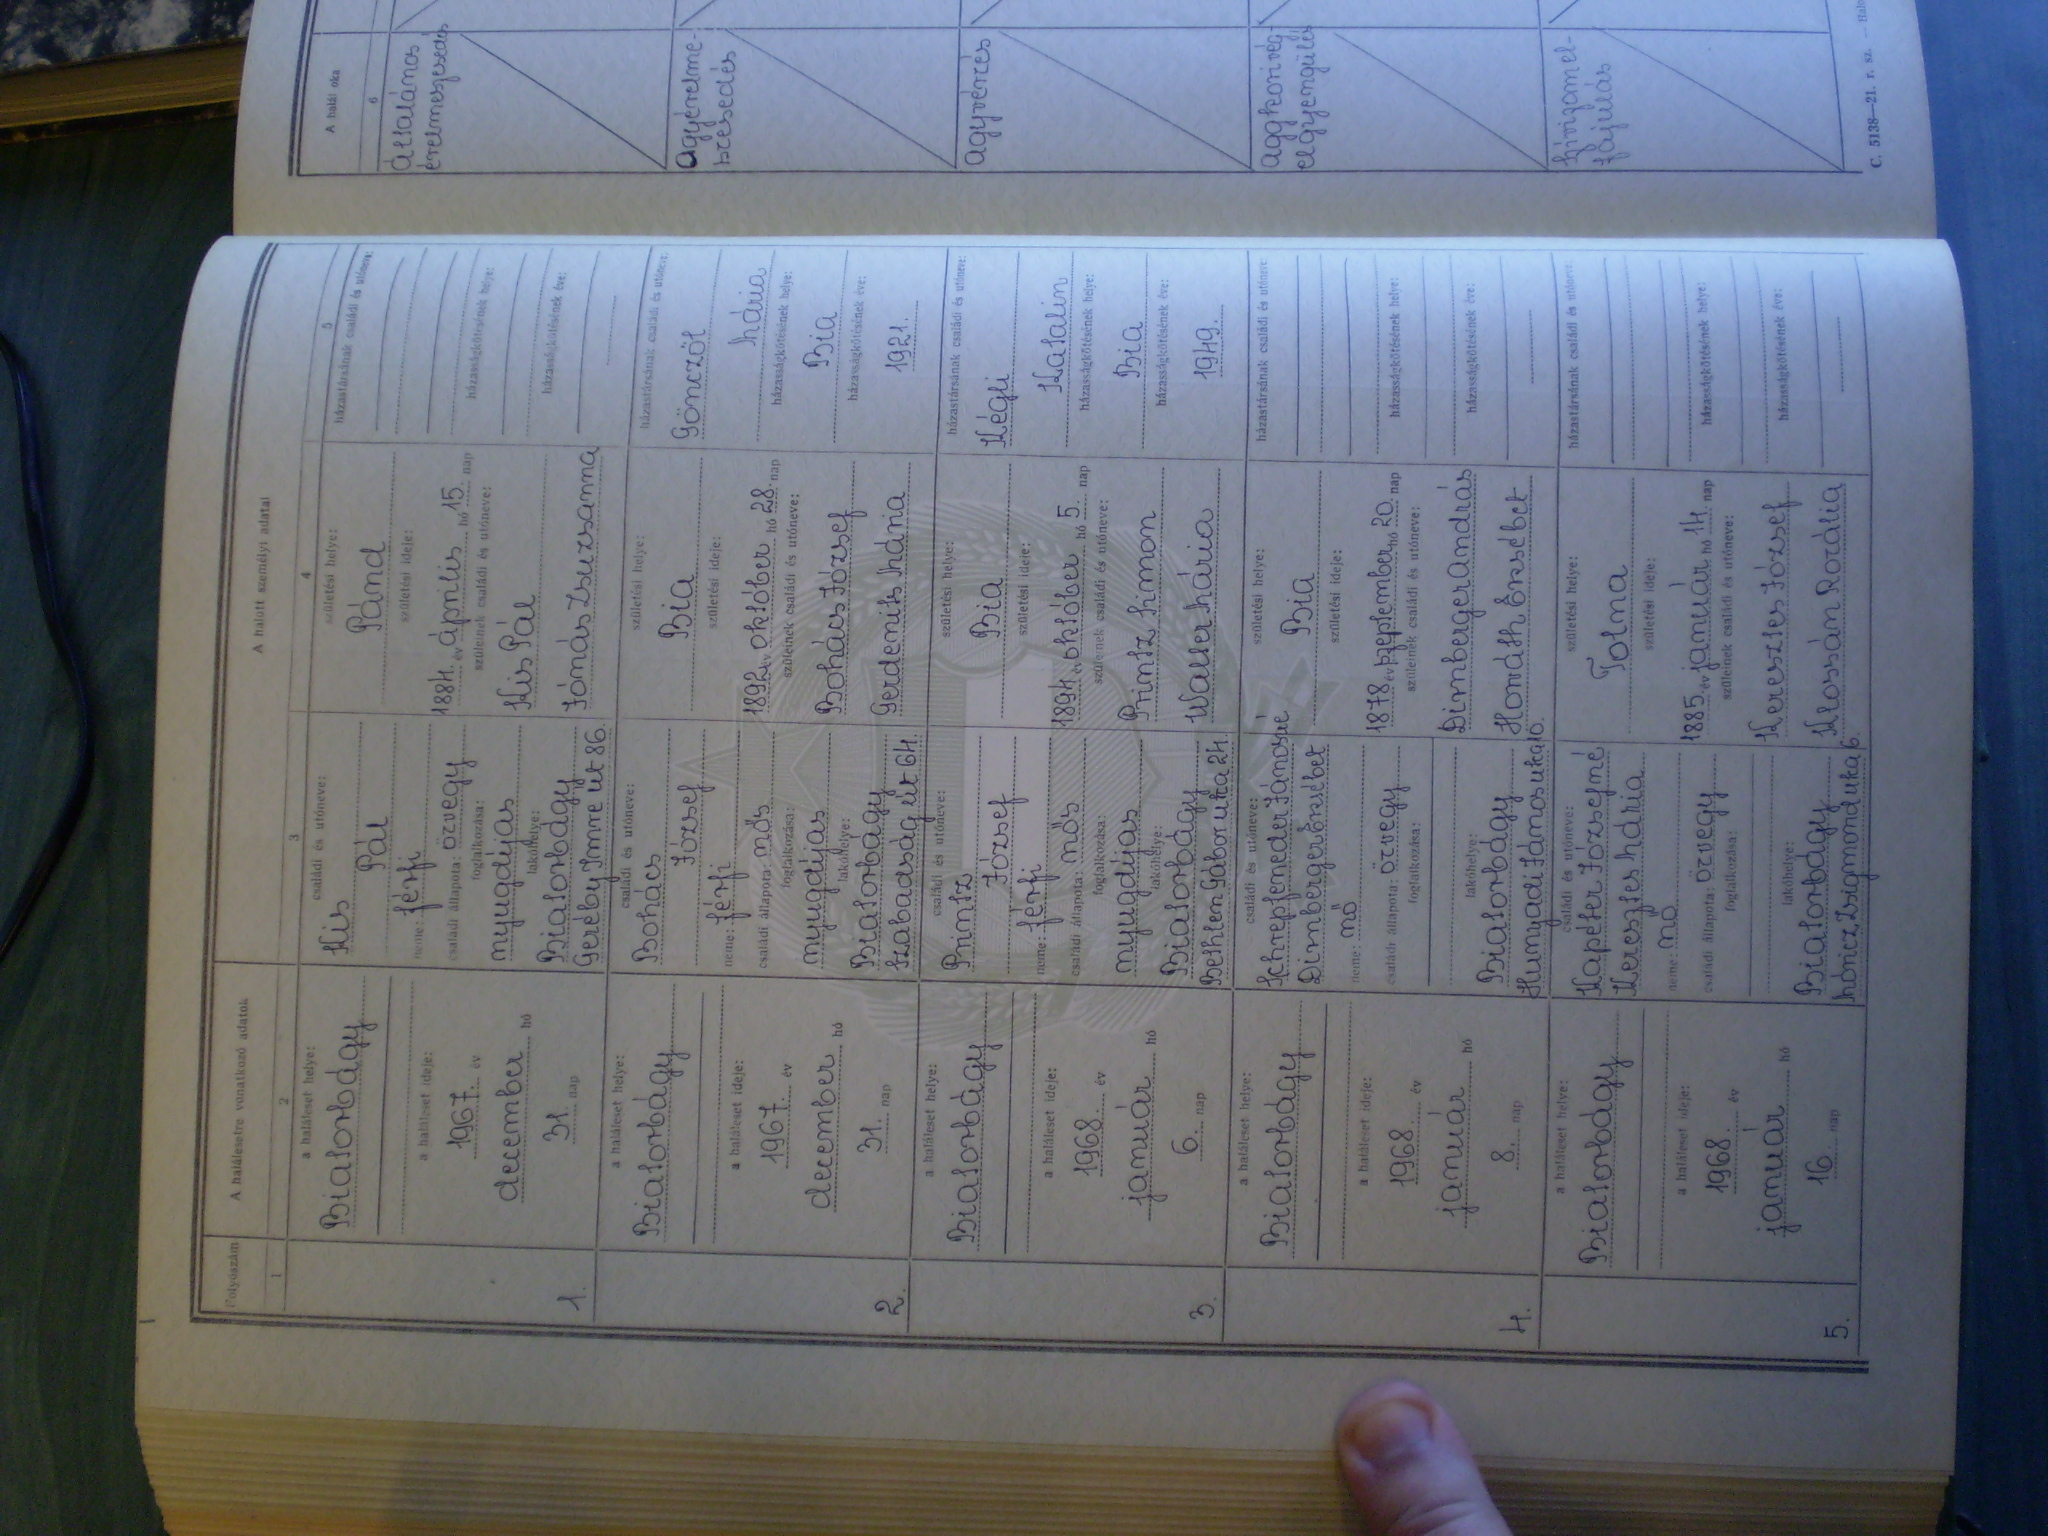 Folyószám
A halálesetre vonatkozó adatok
A halott személyi adatai
A halál oka
1
2
3
4
5
6
1.
a haláleset helye:
Biatorbágy
a haláleset ideje:
1967. év
december hó
31. nap
családi és utóneve:
Kis
Pál
neme: férfi
családi állapota: özvegy
foglalkozása:
nyugdíjas
lakóhelye:
Biatorbágy
Gerébey Imre út 86.
születési helye:
Pánd
születési ideje:
1884. év április hó 15. nap
szüleinek családi és utóneve:
Kis Pál
Tómás Zsuzsanna
házastársának családi és utóneve:
házasságkötésének helye:
házasságkötésének éve:
általános
érelmeszesedés
2.
a haláleset helye:
Biatorbágy
a haláleset ideje:
1967. év
december hó
31. nap
családi és utóneve:
Bohács
József
neme: férfi
családi állapota: nős
foglalkozása:
nyugdíjas
lakóhelye:
Biatorbágy
Szabadság út 64.
születési helye:
Bia
születési ideje:
1892 év október hó 28. nap
szüleinek családi és utóneve:
Bohács József
Gerdenits Mária
házastársának családi és utóneve:
Gönczöl
Mária
házasságkötésének helye:
Bia
házasságkötésének éve:
1921.
agyérelme-
szesedés
3.
a haláleset helye:
Biatorbágy
a haláleset ideje:
1968. év
január hó
6. nap
családi és utóneve:
Printsz
József
neme: férfi
családi állapota: nős
foglalkozása:
nyugdíjas
lakóhelye:
Biatorbágy
Bethlem Gábor utca 24.
születési helye:
Bia
születési ideje:
1894 év október hó 5. nap
szüleinek családi és utóneve:
Printsz Simon
Walser Mária
házastársának családi és utóneve:
Régli
Katalin
házasságkötésének helye:
Bia
házasságkötésének éve:
1949.
agyvérzés
4.
a haláleset helye:
Biatorbágy
a haláleset ideje:
1968. év
január hó
8. nap
családi és utóneve:
Schrepfeneder Jánosné
Dimberger Erzsébet
neme: nő
családi állapota: özvegy
foglalkozása:
lakóhelye:
Biatorbágy
Hunyadi János utca 10.
születési helye:
Bia
születési ideje:
1878 év szeptember hó 20. nap
szüleinek családi és utóneve:
Dimberger András
Horváth Erzsébet
házastársának családi és utóneve:
házasságkötésének helye:
házasságkötésének éve:
aggkori vég-
elgyengülés
5.
a haláleset helye:
Biatorbágy
a haláleset ideje:
1968. év
január hó
16. nap
családi és utóneve:
Kapéter Józsefné
Keresztes Mária
neme: nő
családi állapota: özvegy
foglalkozása:
lakóhelye:
Biatorbágy
Móricz Zsigmond utca 6.
születési helye:
Tolma
születési ideje:
1885 év január hó 14. nap
szüleinek családi és utóneve:
Keresztes József
Klossán Rozália
házastársának családi és utóneve:
házasságkötésének helye:
házasságkötésének éve:
szívizomel-
fajulás
C. 5138—21. r. sz.